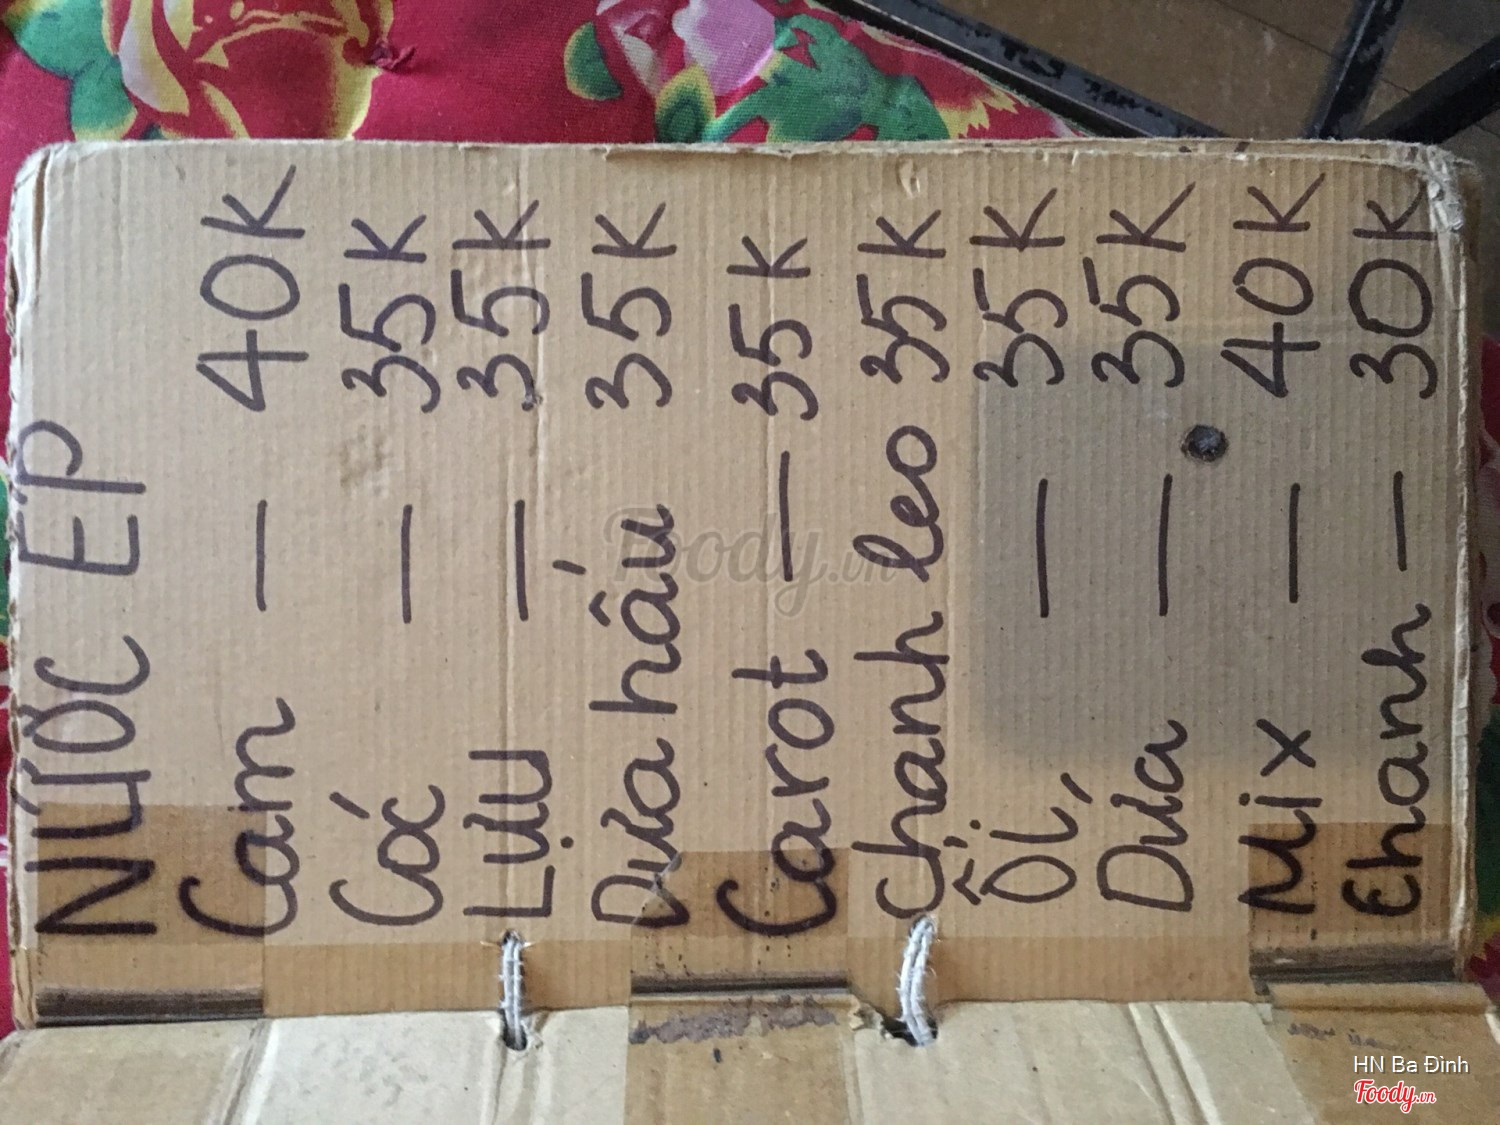 NƯỚC ÉP
Cam — 40K
Cóc — 35K
LỰU — 35K
Dưa hấu 35K
Carot — 35K
Chanh leo 35K
Ổi — 35K
Dứa — 35K
Mix — 40K
Chanh — 30K
Foody.vn
HN Ba Đình
Foody.vn